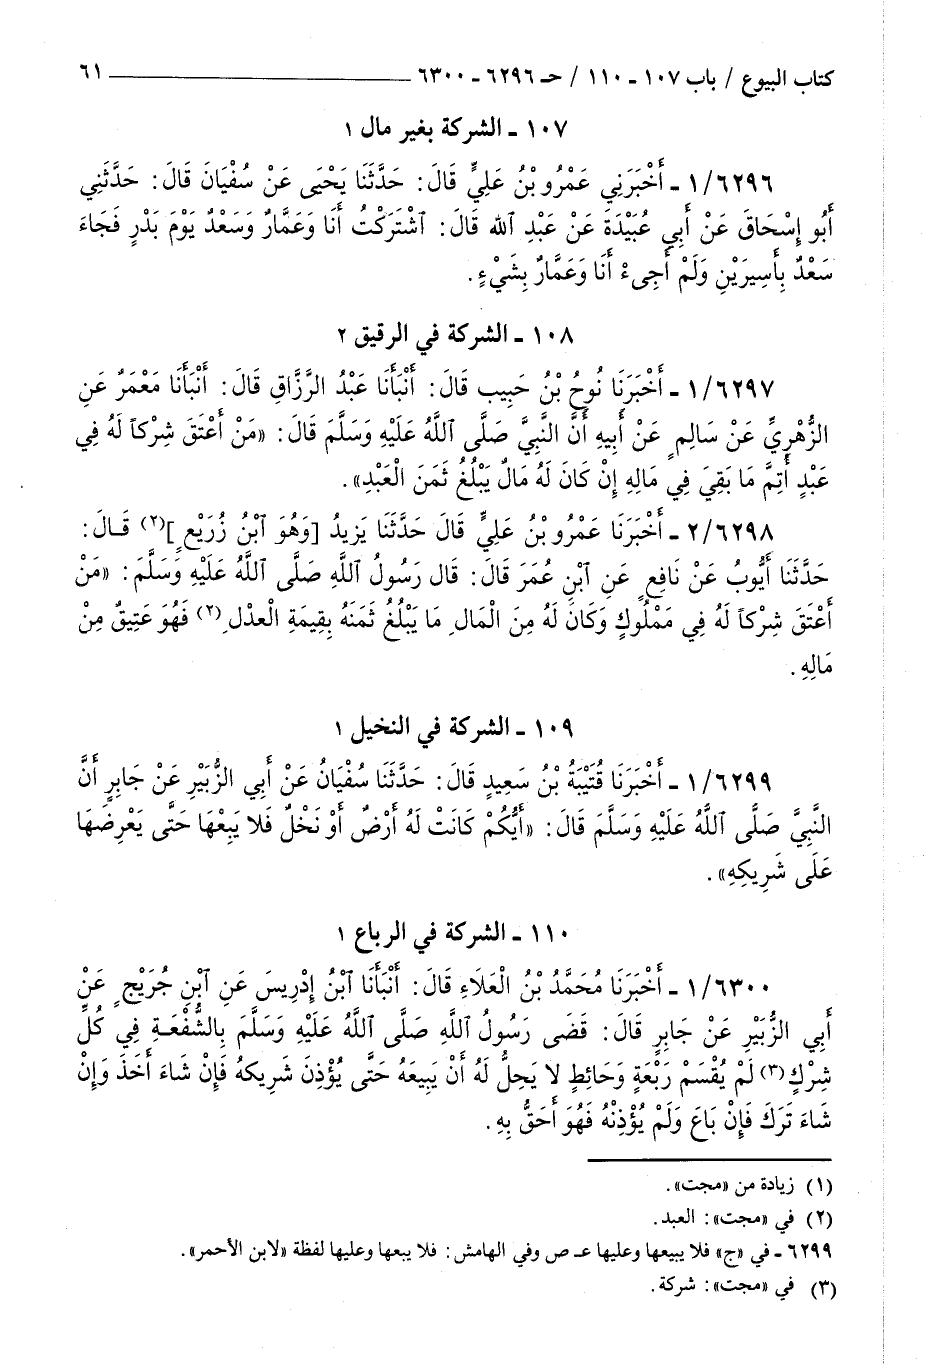 كتاب البيوع / باب ١٠٧ - ١١٠ / حـ ٦٢٩٦ - ٦٣٠٠ ٦١
١٠٧ - الشركة بغير مال ١
١/٦٢٩٦ - أَخْبَرَنِي عَمْرُو بْنُ عَلِيٍّ قَالَ: حَدَّثَنَا يَحْيَى عَنْ سُفْيَانَ قَالَ: حَدَّثَنِي
أَبُو إِسْحَاقَ عَنْ أَبِي عُبَيْدَةَ عَنْ عَبْدِ ٱللهِ قَالَ: ٱشْتَرَكْتُ أَنَا وَعَمَّارٌ وَسَعْدٌ يَوْمَ بَدْرٍ فَجَاءَ
سَعْدٌ بِأَسِيرَيْنِ وَلَمْ أَجِىءْ أَنَا وَعَمَّارٌ بِشَيْءٍ.
١٠٨ - الشركة في الرقيق ٢
١/٦٢٩٧ - أَخْبَرَنَا نُوحُ بْنُ حَبِيبٍ قَالَ: أَنْبَأَنَا عَبْدُ الرَّزَّاقِ قَالَ: أَنْبَأَنَا مَعْمَرٌ عَنِ
الزُّهْرِيِّ عَنْ سَالِمٍ عَنْ أَبِيهِ أَنَّ النَّبِيَّ صَلَّى ٱللَّهُ عَلَيْهِ وَسَلَّمَ قَالَ: «مَنْ أَعْتَقَ شِرْكاً لَهُ فِي
عَبْدٍ أُتِمَّ مَا بَقِيَ فِي مَالِهِ إِنْ كَانَ لَهُ مَالٌ يَبْلُغُ ثَمَنَ الْعَبْدِ».
٢/٦٢٩٨ - أَخْبَرَنَا عَمْرُو بْنُ عَلِيٍّ قَالَ حَدَّثَنَا يَزِيدُ [وَهُوَ ٱبْنُ زُرَيْعٍ](٢) قَـالَ:
حَدَّثَنَا أَيُّوبُ عَنْ نَافِعٍ عَنِ ٱبْنِ عُمَرَ قَالَ: قَالَ رَسُولُ ٱللَّهِ صَلَّى ٱللَّهُ عَلَيْهِ وَسَلَّمَ: «مَنْ
أَعْتَقَ شِرْكاً لَهُ فِي مَمْلُوكٍ وَكَانَ لَهُ مِنَ الْمَالِ مَا يَبْلُغُ ثَمَنَهُ بِقِيمَةِ الْعدْلِ(٢) فَهُوَ عَتِيقٌ مِنْ
مَالِهِ.
١٠٩ - الشركة في النخيل ١
١/٦٢٩٩ - أَخْبَرَنَا قُتَيْبَةُ بْنُ سَعِيدٍ قَالَ: حَدَّثَنَا سُفْيَانُ عَنْ أَبِي الزُّبَيْرِ عَنْ جَابِرٍ أَنَّ
النَّبِيَّ صَلَّى ٱللَّهُ عَلَيْهِ وَسَلَّمَ قَالَ: «أَيُّكُمْ كَانَتْ لَهُ أَرْضٌ أَوْ نَخْلٌ فَلا يَبِعْهَا حَتَّى يَعْرِضَهَا
عَلَى شَرِيكِهِ».
١١٠ - الشركة في الرباع ١
١/٦٣٠٠ - أَخْبَرَنَا مُحَمَّدُ بْنُ الْعَلَاءِ قَالَ: أَنْبَأَنَا ٱبْنُ إِدْرِيسَ عَنِ ٱبْنِ جُرَيْجٍ عَنْ
أَبِي الزُّبَيْرِ عَنْ جَابِرٍ قَالَ: قَضَى رَسُولُ ٱللَّهِ صَلَّى ٱللَّهُ عَلَيْهِ وَسَلَّمَ بِالشُّفْعَةِ فِي كُلِّ
شِرْكٍ(٣) لَمْ يُقْسَمْ رَبْعَةٍ وَحَائِطٍ لا يَحِلُّ لَهُ أَنْ يَبِيعَهُ حَتَّى يُؤْذِنَ شَرِيكَهُ فَإِنْ شَاءَ أَخَذَ وَإِنْ
شَاءَ تَرَكَ فَإِنْ بَاعَ وَلَمْ يُؤْذِنْهُ فَهُوَ أَحَقُّ بِهِ.
(١) زيادة من «مجت».
(٢) في «مجت»: العبد.
٦٢٩٩ - في «ج» فلا يبيعها وعليها عـ ص وفي الهامش: فلا يبعها وعليها لفظة «لابن الأحمر».
(٣) في «مجت»: شركة.